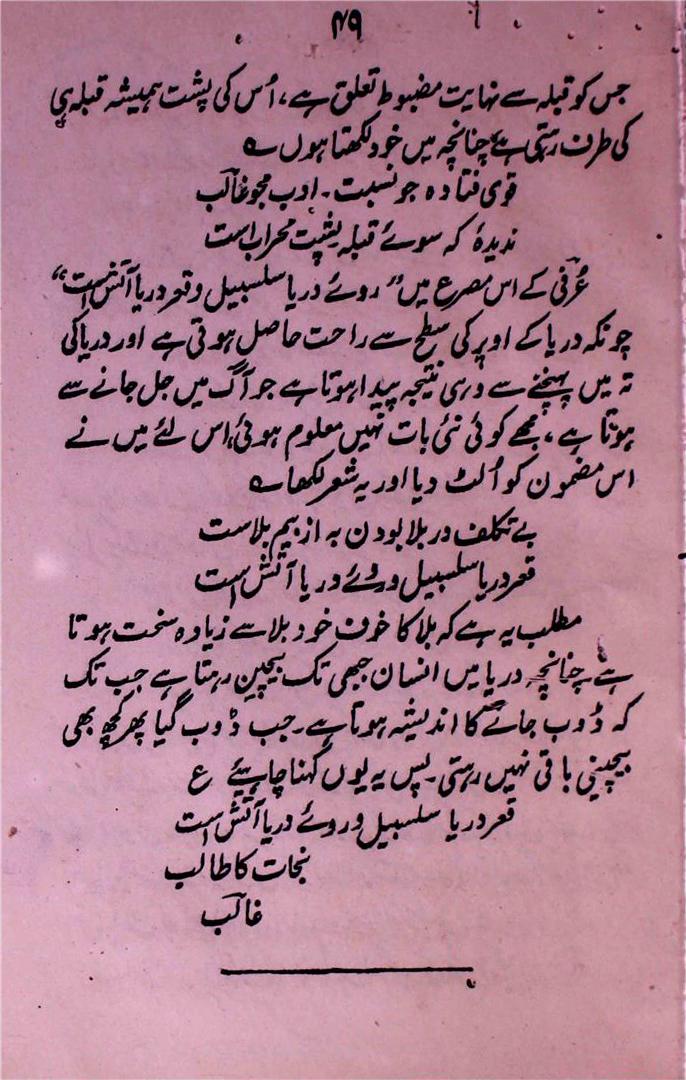 ۴۹
جس کو قبلہ سے نہایت مضبوط تعلق ہے، اُس کی پشت ہمیشہ قبلہ ہی
کی طرف رہتی ہے چنانچہ میں خود لکھتا ہوں ؎
قوی فتادہ چو نسبت ۔ ادب مجو غالبؔ
ندیدۂ کہ سوئے قبلہ پشت محراب است
عُرفی کے اس مصرع میں "روئے دریا سلسبیل و قعر دریا آتش است"
چونکہ دریا کے اوپر کی سطح سے راحت حاصل ہوتی ہے اور دریا کی
تہ میں پہنچنے سے وہی نتیجہ پیدا ہوتا ہے جو آگ میں جل جانے سے
ہوتا ہے، مجھے کوئی نئی بات نہیں معلوم ہوئی، اس لئے میں نے
اس مضمون کو اُلٹ دیا اور یہ شعر لکھا ؎
بے تکلف در بلا بودن بہ از بیم بلاست
قعر دریا سلسبیل و روئے دریا آتش است
مطلب یہ ہے کہ بلا کا خوف خود بلا سے زیادہ سخت ہوتا
ہے۔ چنانچہ دریا میں انسان جبھی تک بیچین رہتا ہے جب تک
کہ ڈوب جانے کا اندیشہ ہوتا ہے۔ جب ڈوب گیا پھر کچھ بھی
بیچینی باقی نہیں رہتی۔ پس یہ یوں کہنا چاہیئے ع
قعر دریا سلسبیل و روئے دریا آتش است
نجات کا طالب
غالبؔ